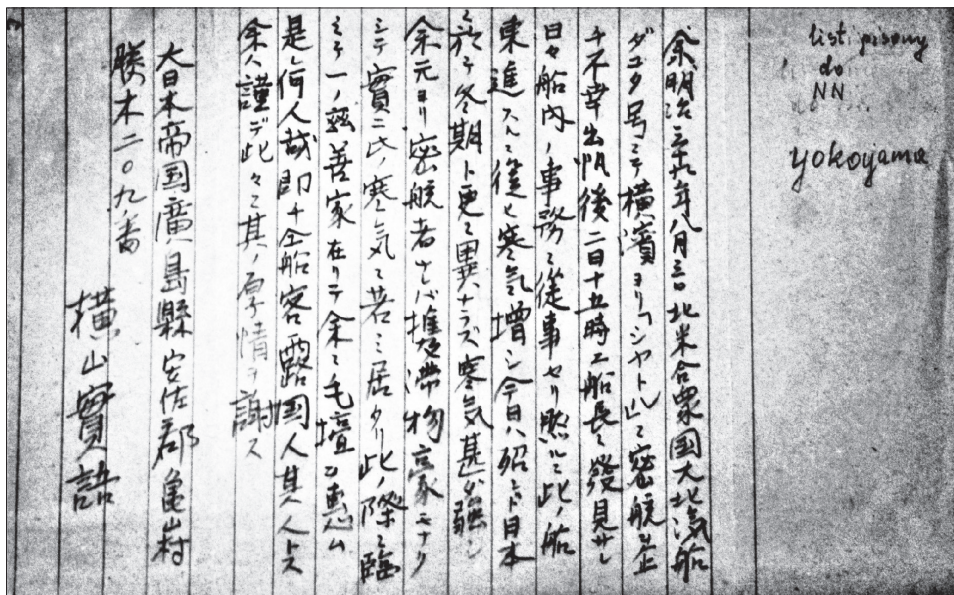 list pisany
do
NN
Yokoyama
余明治三十九年八月三日北米合衆国大北汽船
ダコタ号ニテ横濱ヨリ「シヤトル」ニ密航ヲ企
チ不幸出帆後二日十五時ニ船長ニ發見サレ
日々船内ノ事務ニ從事セリ然ルニ此ノ船
東進スルニ從ヒ寒気増シ今日ハ殆ンド日本
於テ冬期ト更ニ異ナラズ寒気甚ダ強シ
余元ヨリ密航者ナレバ携帯物毫モナク
シテ實ニ此ノ寒気ニ苦ミ居タリ此ノ際ニ臨
ミテ一ノ慈善家在リテ余ニ毛壇ヲ惠ム
是レ何人哉即チ仝船客露國人某人トス
余人謹デ此々ニ其ノ厚情ヲ謝ス
大日本帝国廣島縣安佐郡亀山村
勝木二〇九番
横山實語